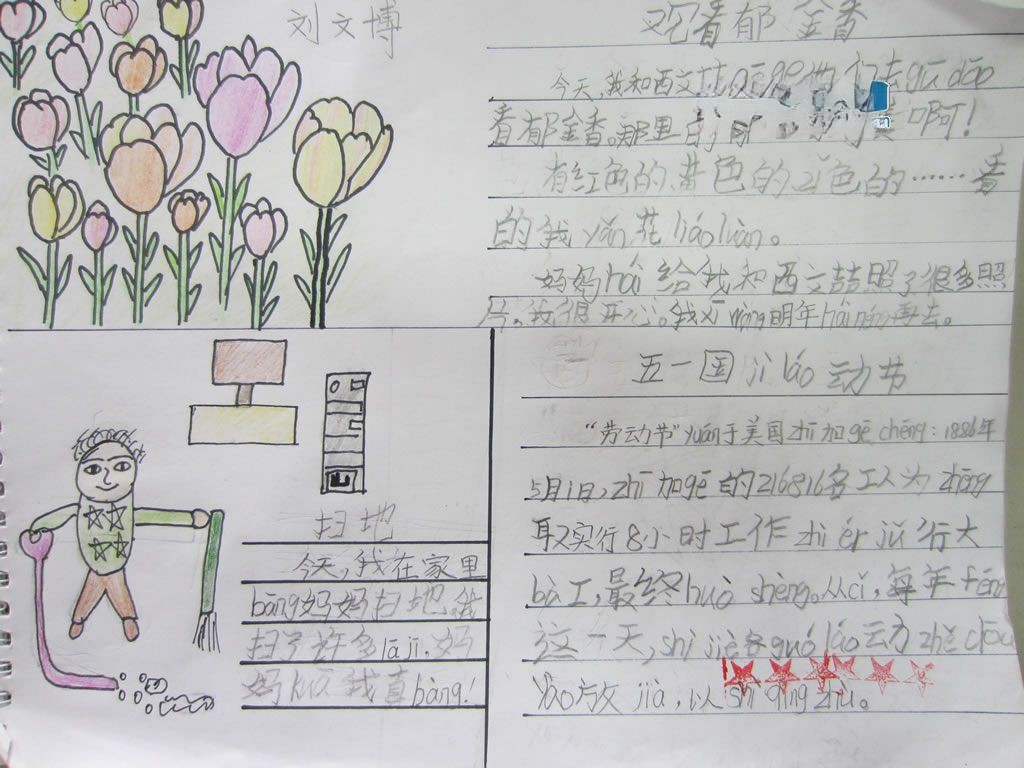 刘文博
观看郁金香
今天,我和西文 他们去gū dǎo
看郁金香。那里的 啊!
有红色的黄色的zǐ色的……看
的我yǎn花liáo luàn。
妈妈hái给我和西文喆照了很多照
片,我很开心。我xī wàng明年hái néng再去。
五一国jì láo动节
“劳动节”yuán于美国zhī加gē chéng:1886年
5月1日,zhī加gē的216816名工人为zhēng
取实行8小时工作zhì ér jǔ行大
bà工,最终huò shèng。从cǐ,每年féng
这一天,shì jiè各guó láo动zhě dōu
yào放jià,以shì qìng zhù。
扫地
今天,我在家里
bāng妈妈扫地。我
扫了许多lā jī,妈
妈kuā我真bàng!